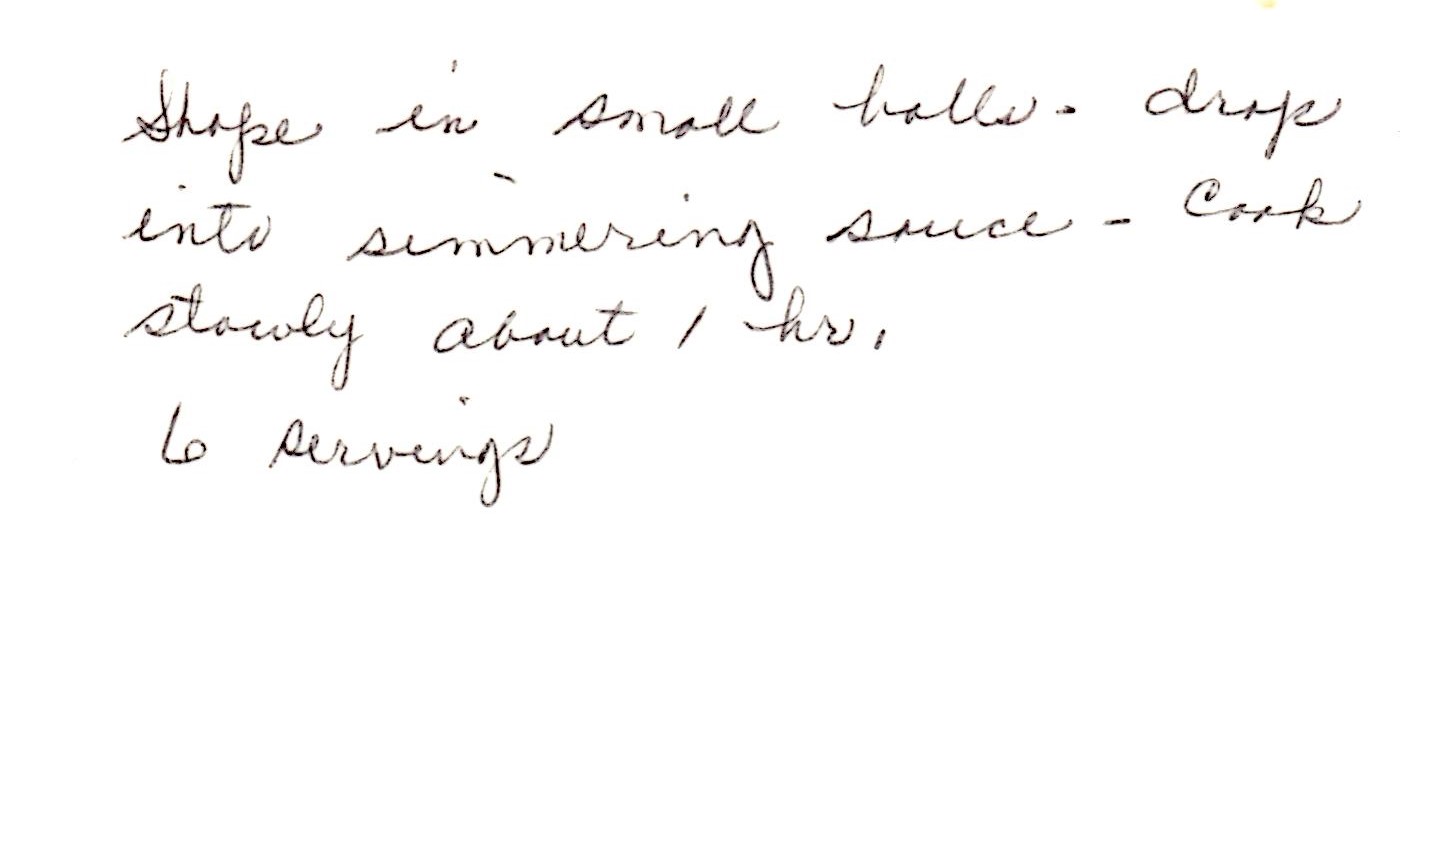 Shape in small balls - drop
into simmering sauce - Cook
slowly about 1 hr.
6 servings